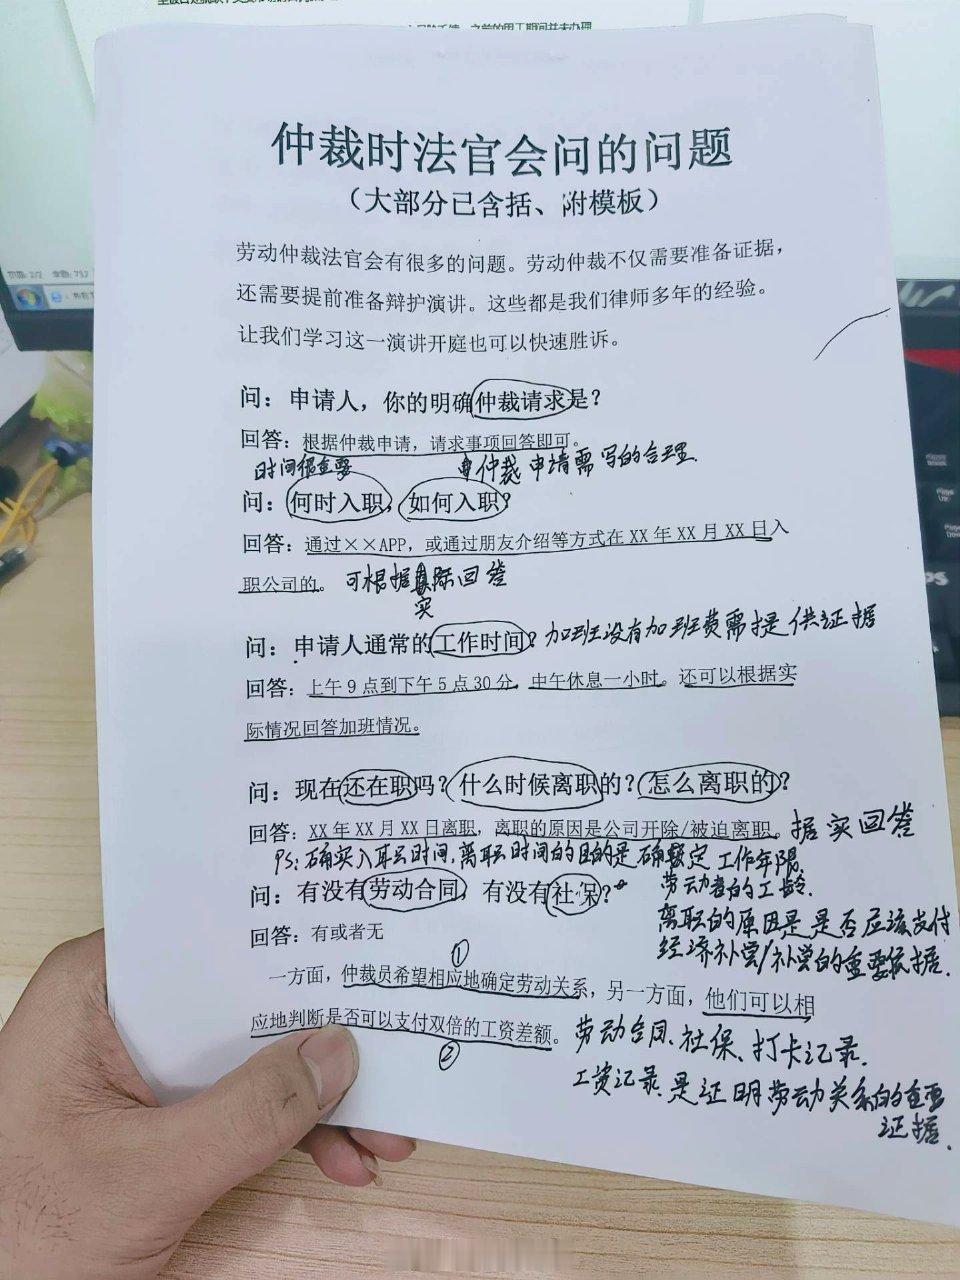 仲裁时法官会问的问题
（大部分已含括、附模板）
劳动仲裁法官会有很多的问题。劳动仲裁不仅需要准备证据，
还需要提前准备辩护演讲。这些都是我们律师多年的经验。
让我们学习这一演讲开庭也可以快速胜诉。
问：申请人，你的明确仲裁请求是？
回答：根据仲裁申请，请求事项回答即可。
时间很重要 仲裁申请需写的合理
问：何时入职，如何入职？
回答：通过××APP，或通过朋友介绍等方式在 XX 年 XX 月 XX 日入
职公司的。 可根据实际回答
问：申请人通常的工作时间？ 加班没有加班费需提供证据
回答：上午 9 点到下午 5 点 30 分，中午休息一小时。还可以根据实
际情况回答加班情况。
问：现在还在职吗？什么时候离职的？怎么离职的？
回答：XX 年 XX 月 XX 日离职，离职的原因是公司开除/被迫离职。 据实回答
PS：确实入职时间,离职时间的目的是确定工作年限,
劳动者的工龄.
问：有没有劳动合同，有没有社保？
离职的原因是是否应该支付
回答：有或者无
经济补偿/补偿的重要依据.
①
一方面，仲裁员希望相应地确定劳动关系，另一方面，他们可以相
应地判断是否可以支付双倍的工资差额。
②
劳动合同、社保、打卡记录.
工资记录.是证明劳动关系的重要
证据.